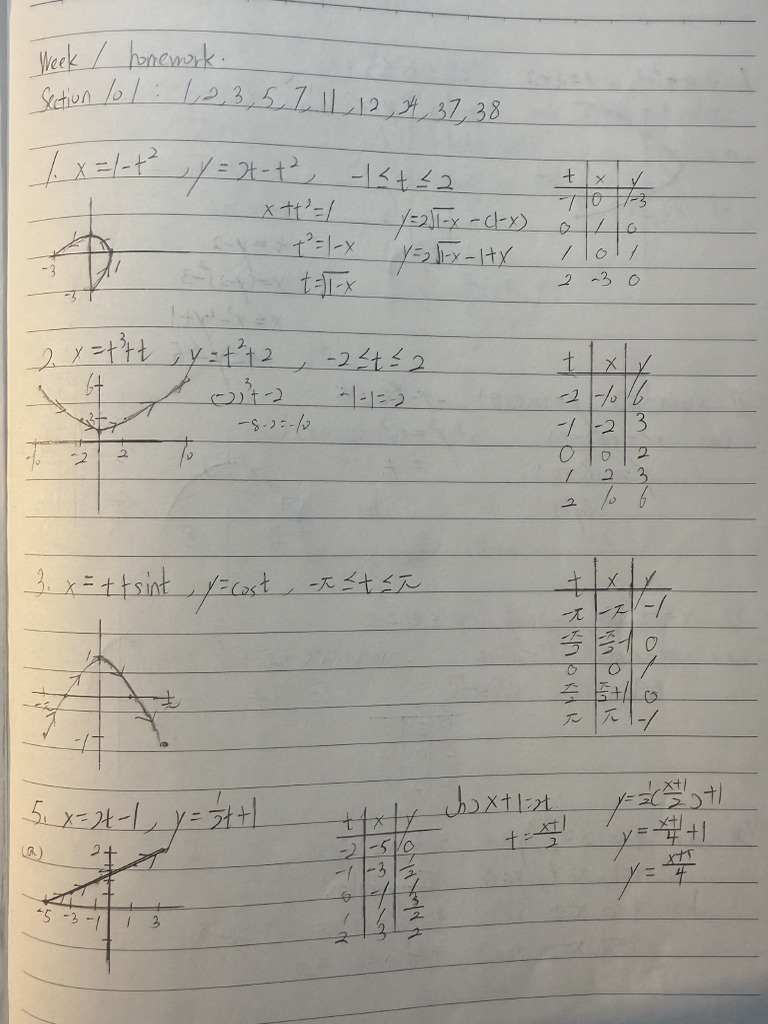 Week 1 homework.
Section 10 1 : 1, 2, 3, 5, 7, 11, 12, 24, 37, 38
1. x=1-t², y=2t-t², -1≤t≤2
x+t²=1 y=2√1-x -(1-x)
t²=1-x y=2√1-x -1+x
t=√1-x
t x y
-1 0 -3
0 1 0
1 0 1
2 -3 0
1
-3 1
-3
2. x=t³+t, y=t²+2, -2≤t≤2
(-2)³+-2 -1-1=-2
-8-2=-10
t x y
-2 -10 6
-1 -2 3
0 0 2
1 2 3
2 10 6
6
3
-10 -2 2 10
3. x=t+sint, y=cost, -π≤t≤π
t x y
-π -π -1
-π/2 -π/2-1 0
0 0 1
π/2 π/2+1 0
π π -1
1
-π π
-1
5. x=2t-1, y=1/2t+1
(a)
2
-5 -3 -1 1 3
t x y
-2 -5 0
-1 -3 1/2
0 -1 1
1 1 3/2
2 3 2
(b) x+1=2t y=1/2(x+1/2)+1
t=x+1/2 y=x+1/4+1
y=x+5/4